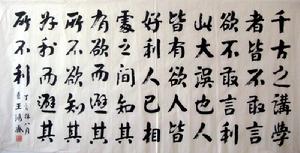 千古之講學
者皆不敢言
欲不敢言利
此大誤也人
皆有欲人皆
好利人已相
處之間知其
有欲而遂其
所欲知其
好利而遜其
所不利
八月
王鴻